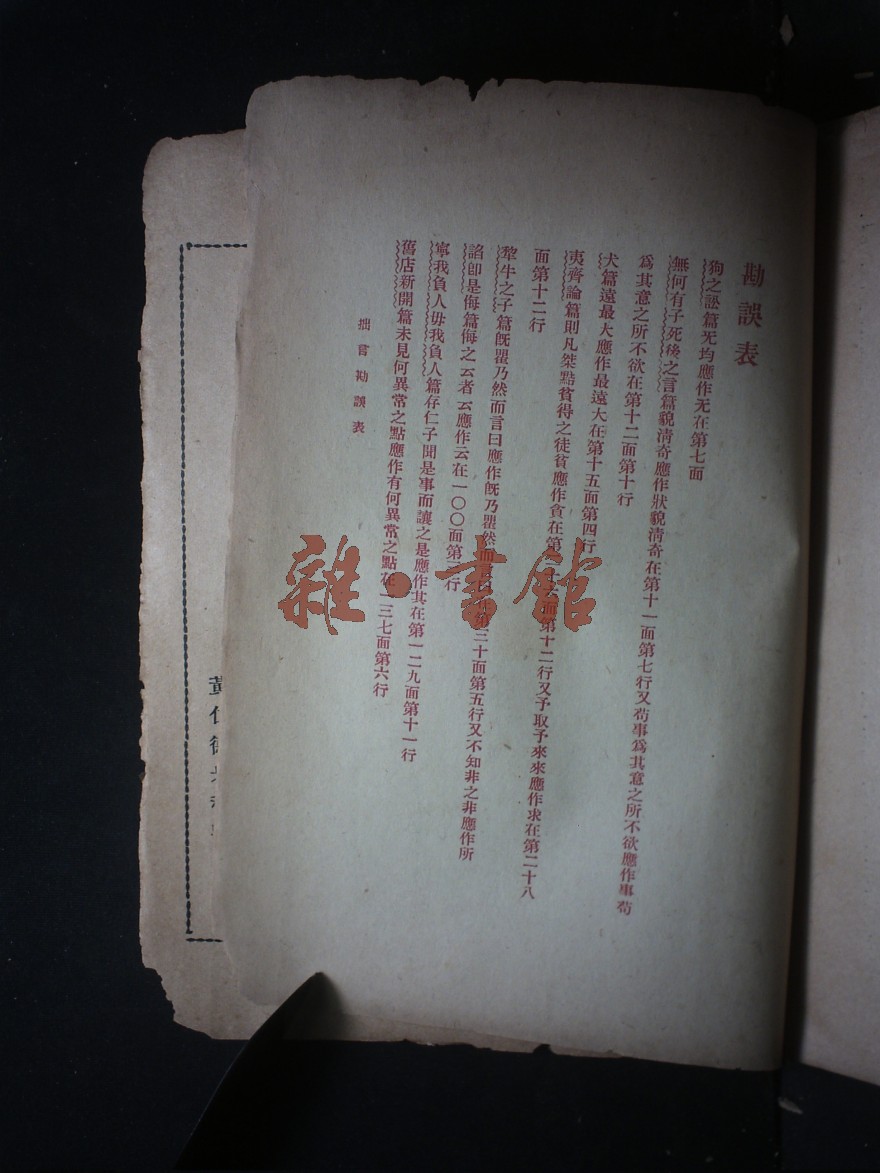 勘誤表
狗之訟篇旡均應作无在第七面
無何有子死後之言篇貌清奇應作狀貌清奇在第十一面第七行又苟事爲其意之所不欲應作事苟
爲其意之所不欲在第十二面第十行
犬篇遠最大應作最遠大在第十五面第四行
夷齊論篇則凡桀黠貧得之徒貧應作貪在第二十 面第十二行又予取予來來應作求在第二十八
面第十二行
犂牛之子篇旣瞿乃然而言曰應作旣乃瞿然而言曰在第三十面第五行又不知非之非應作所
諂卽是侮篇侮之云者云應作云在一〇〇面第 行
寧我負人毋我負人篇存仁子聞是事而讓之是應作其在第一二九面第十一行
舊店新開篇未見何異常之點應作有何異常之點在一三七面第六行
拙言勘誤表
雜·書館